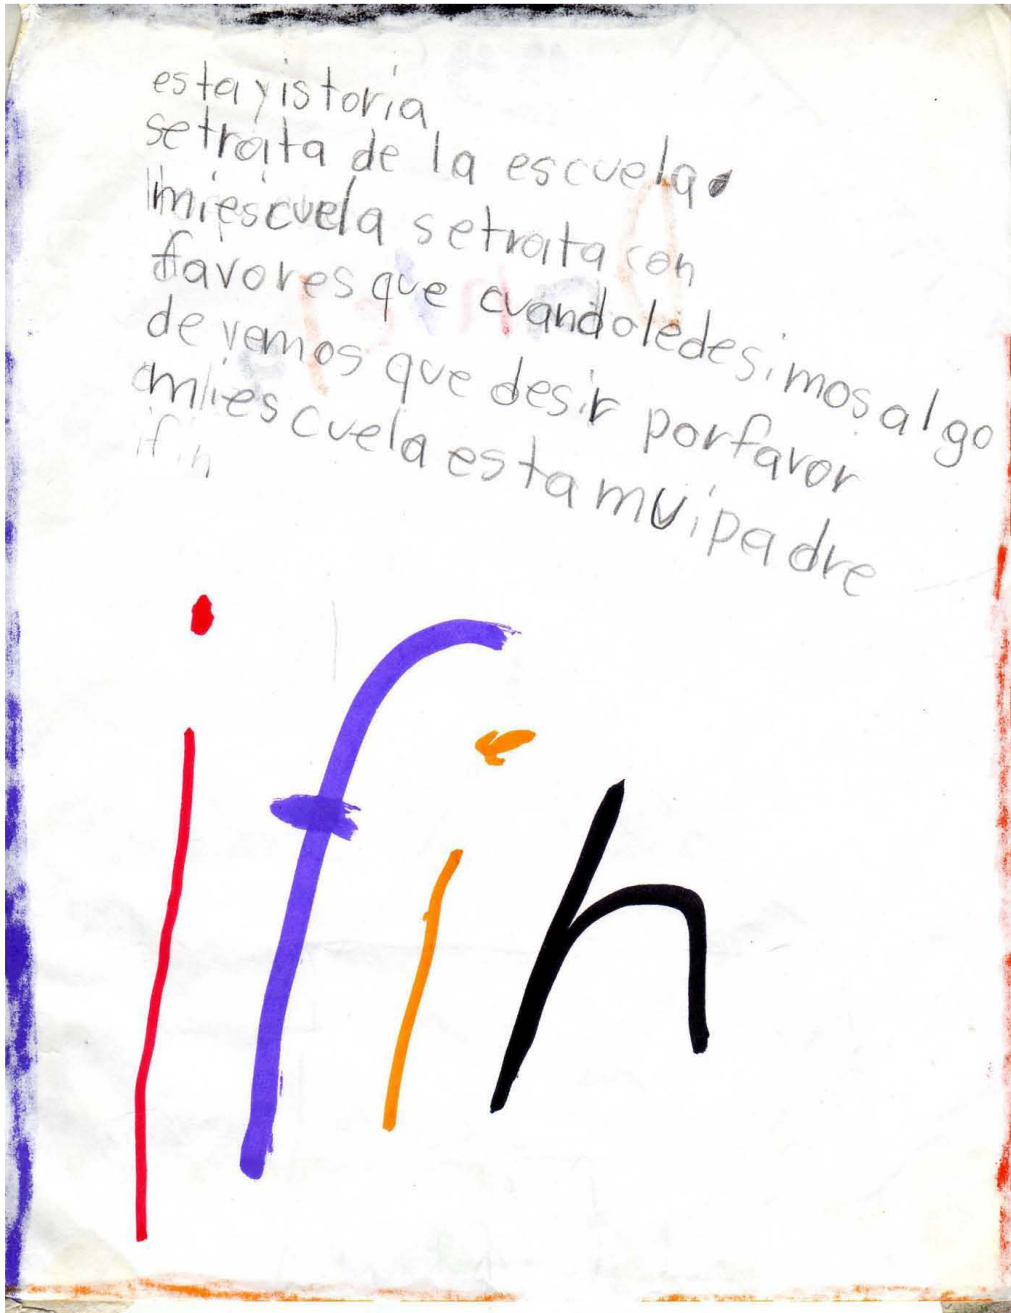 estayistoria
setraita de la escuela.
miescuela setraita con
favores que cuandoledesimosalgo
devemos que desir porfavor
amiescuelaestamuipadre
ifin
ifin